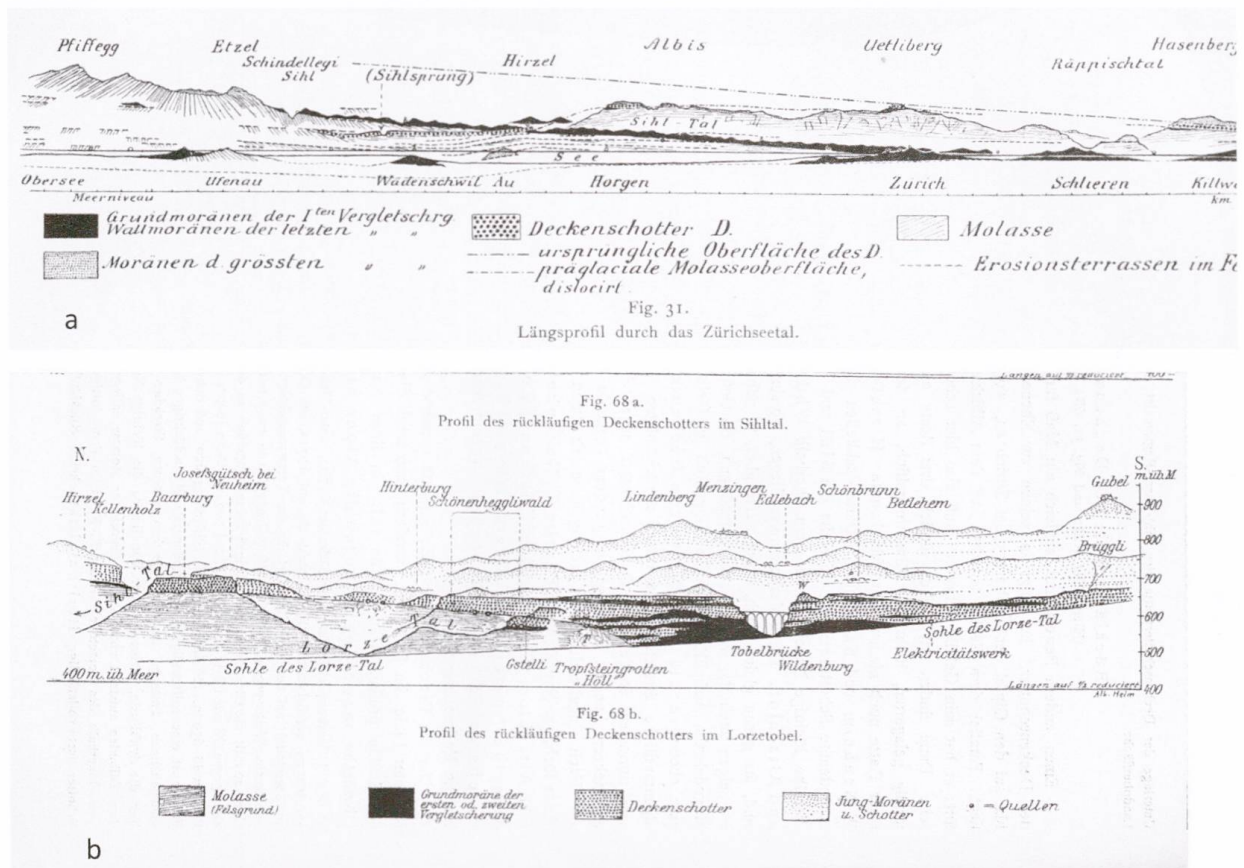 Pfiffegg Etzel Albis Uetliberg Hasenberg
Schindellegi Hirzel Räppischtal
Sihl (Sihlsprung)
Sihl-Tal
See
Obersee Ufenau Wädenschwil Au Horgen Zürich Schlieren Killwa
Meerniveau km.
Grundmoränen der Iten Vergletschrg
Wallmoränen der letzten „ „
Moränen d. grössten „ „
Deckenschotter D.
ursprüngliche Oberfläche des D.
präglaciale Molasseoberfläche,
dislocirt
Molasse
Erosionsterrassen im Fe
Fig. 31.
a
Längsprofil durch das Zürichseetal.
Längen auf ⅔ reducirt 400
Fig. 68 a.
Profil des rückläufigen Deckenschotters im Sihltal.
N. S.
m.üb.M.
Josefsgütsch bei
Neuheim
Hirzel
Kellenholz
Baarburg
Hinterburg
Schönenheggliwald
Lindenberg
Menzingen
Edlebach
Schönbrunn
Betlehem
Gubel
Brüggli
900
800
700
600
500
400
Sihl-Tal
W
Lorze Tal
Sohle des Lorze-Tal
400 m. üb. Meer
Sohle des Lorze-Tal
Gstelli
Tropfsteingrotten
„Höll"
Tobelbrücke
Wildenburg
Elektricitätswerk
Längen auf ⅔ reduciert
Alb. Heim
Fig. 68 b.
Profil des rückläufigen Deckenschotters im Lorzetobel.
Molasse
(Felsgrund)
Grundmoräne der
ersten od. zweiten
Vergletscherung
Deckenschotter
Jung-Moränen
u. Schotter
Quellen
b